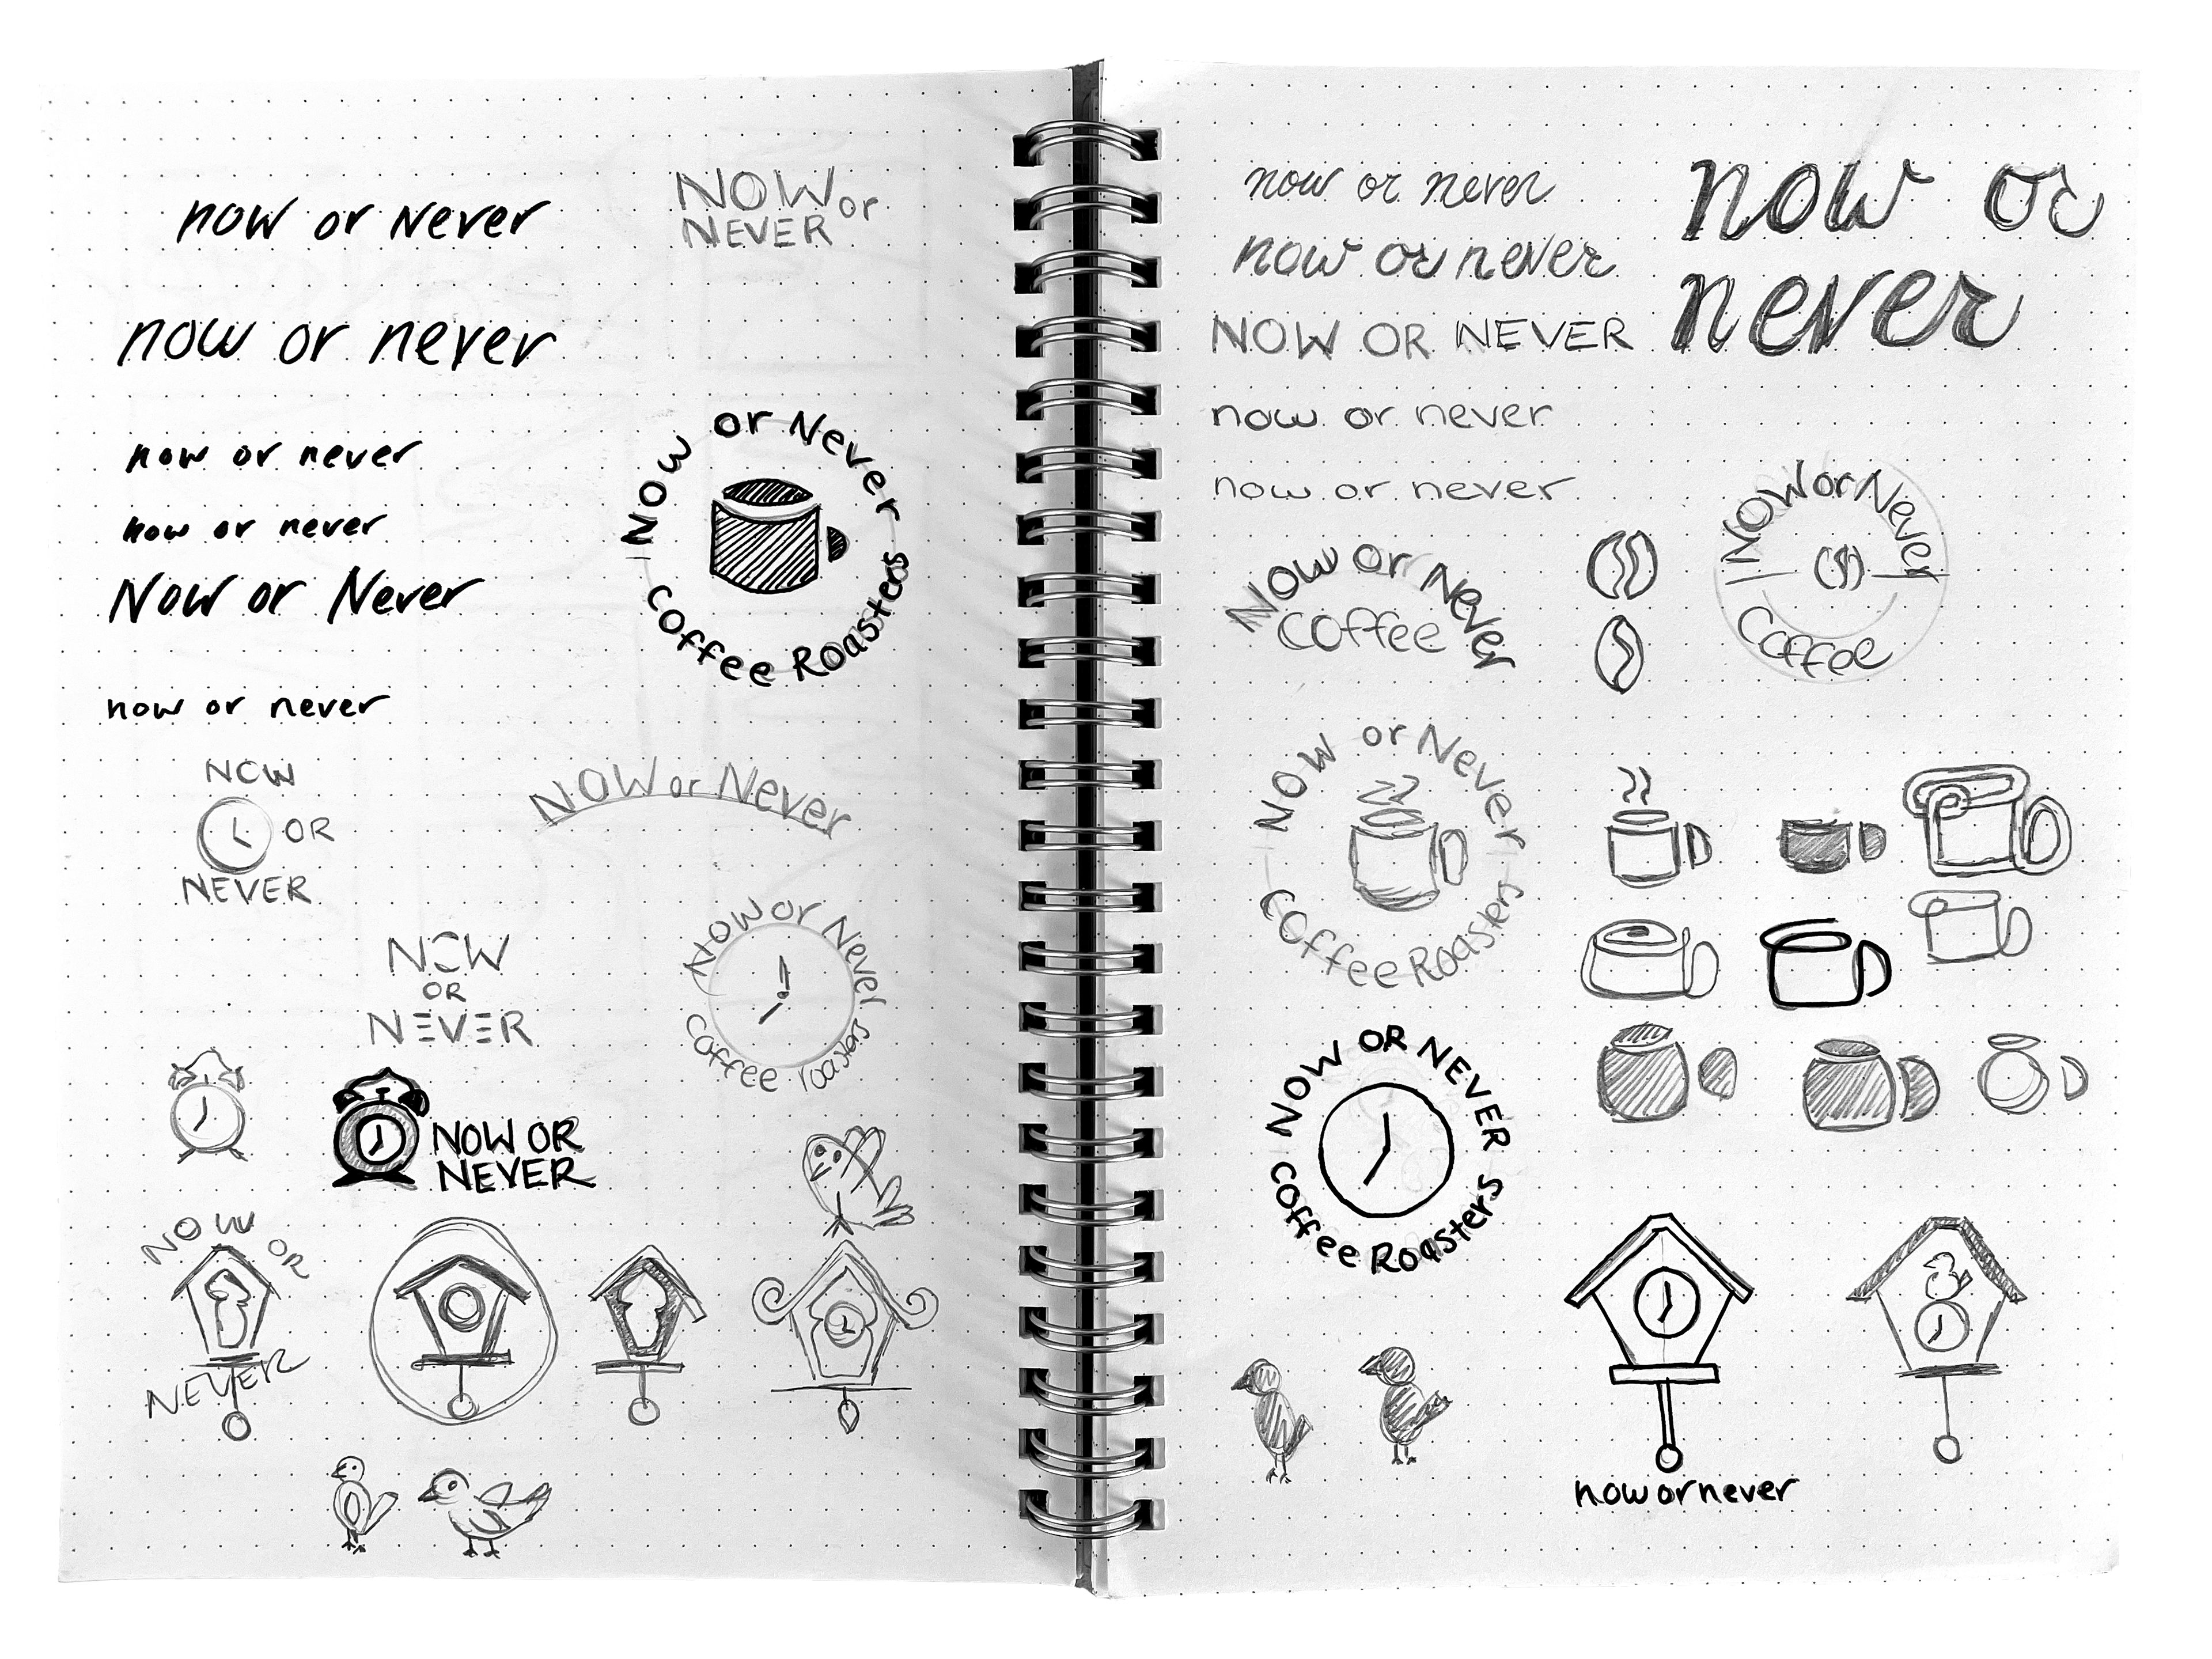 now or Never
NOW or
NEVER
now or never
now or never
now or never
Now or Never
now or never
Now or Never
Coffee Roasters
NOW
OR
NEVER
NOW or Never
NOW
OR
NEVER
Now or Never
Coffee roasters
NOW OR
NEVER
NOW OR
NEVER
now or never
now or never
NOW OR NEVER
now or never
now or never
now or
never
Now or Never
Coffee
Now or Never
Coffee
Now or Never
Coffee Roasters
NOW OR NEVER
Coffee Roasters
now or never